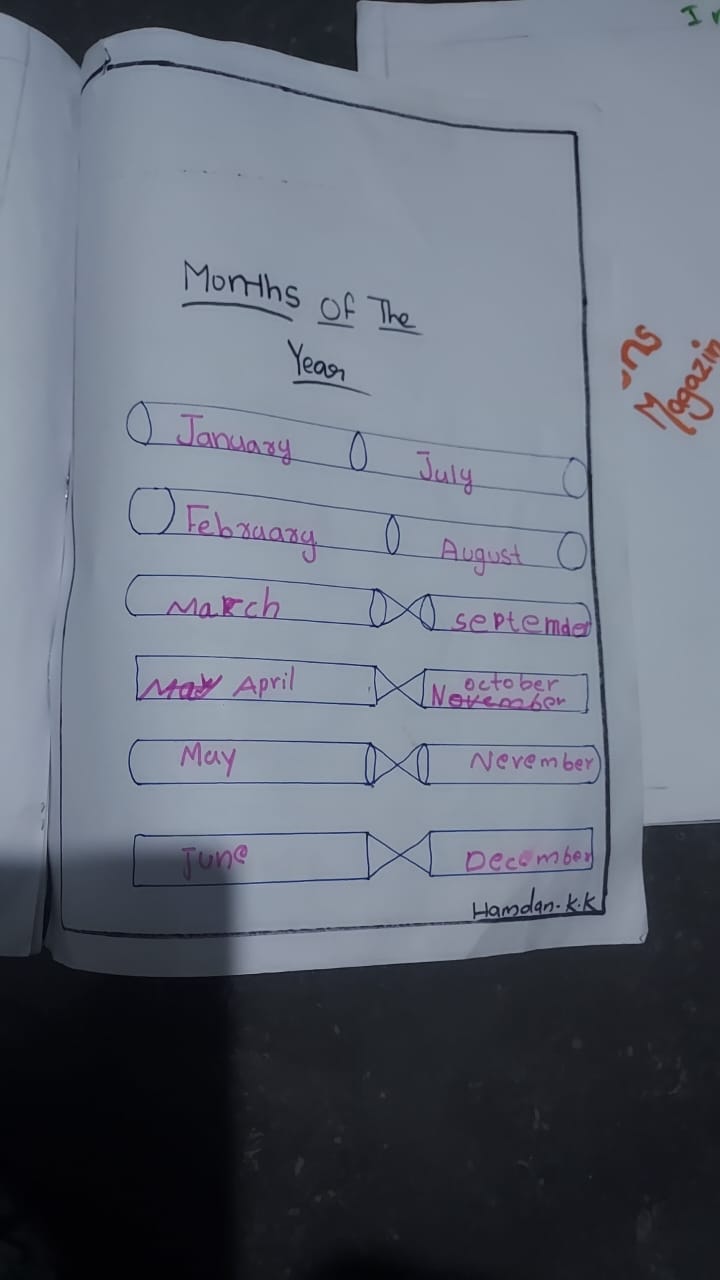 Months of The
Year
January July
February August
March septemder
May April october
November
May Nevember
June December
Hamdan.K.K
I
ns
Magazin